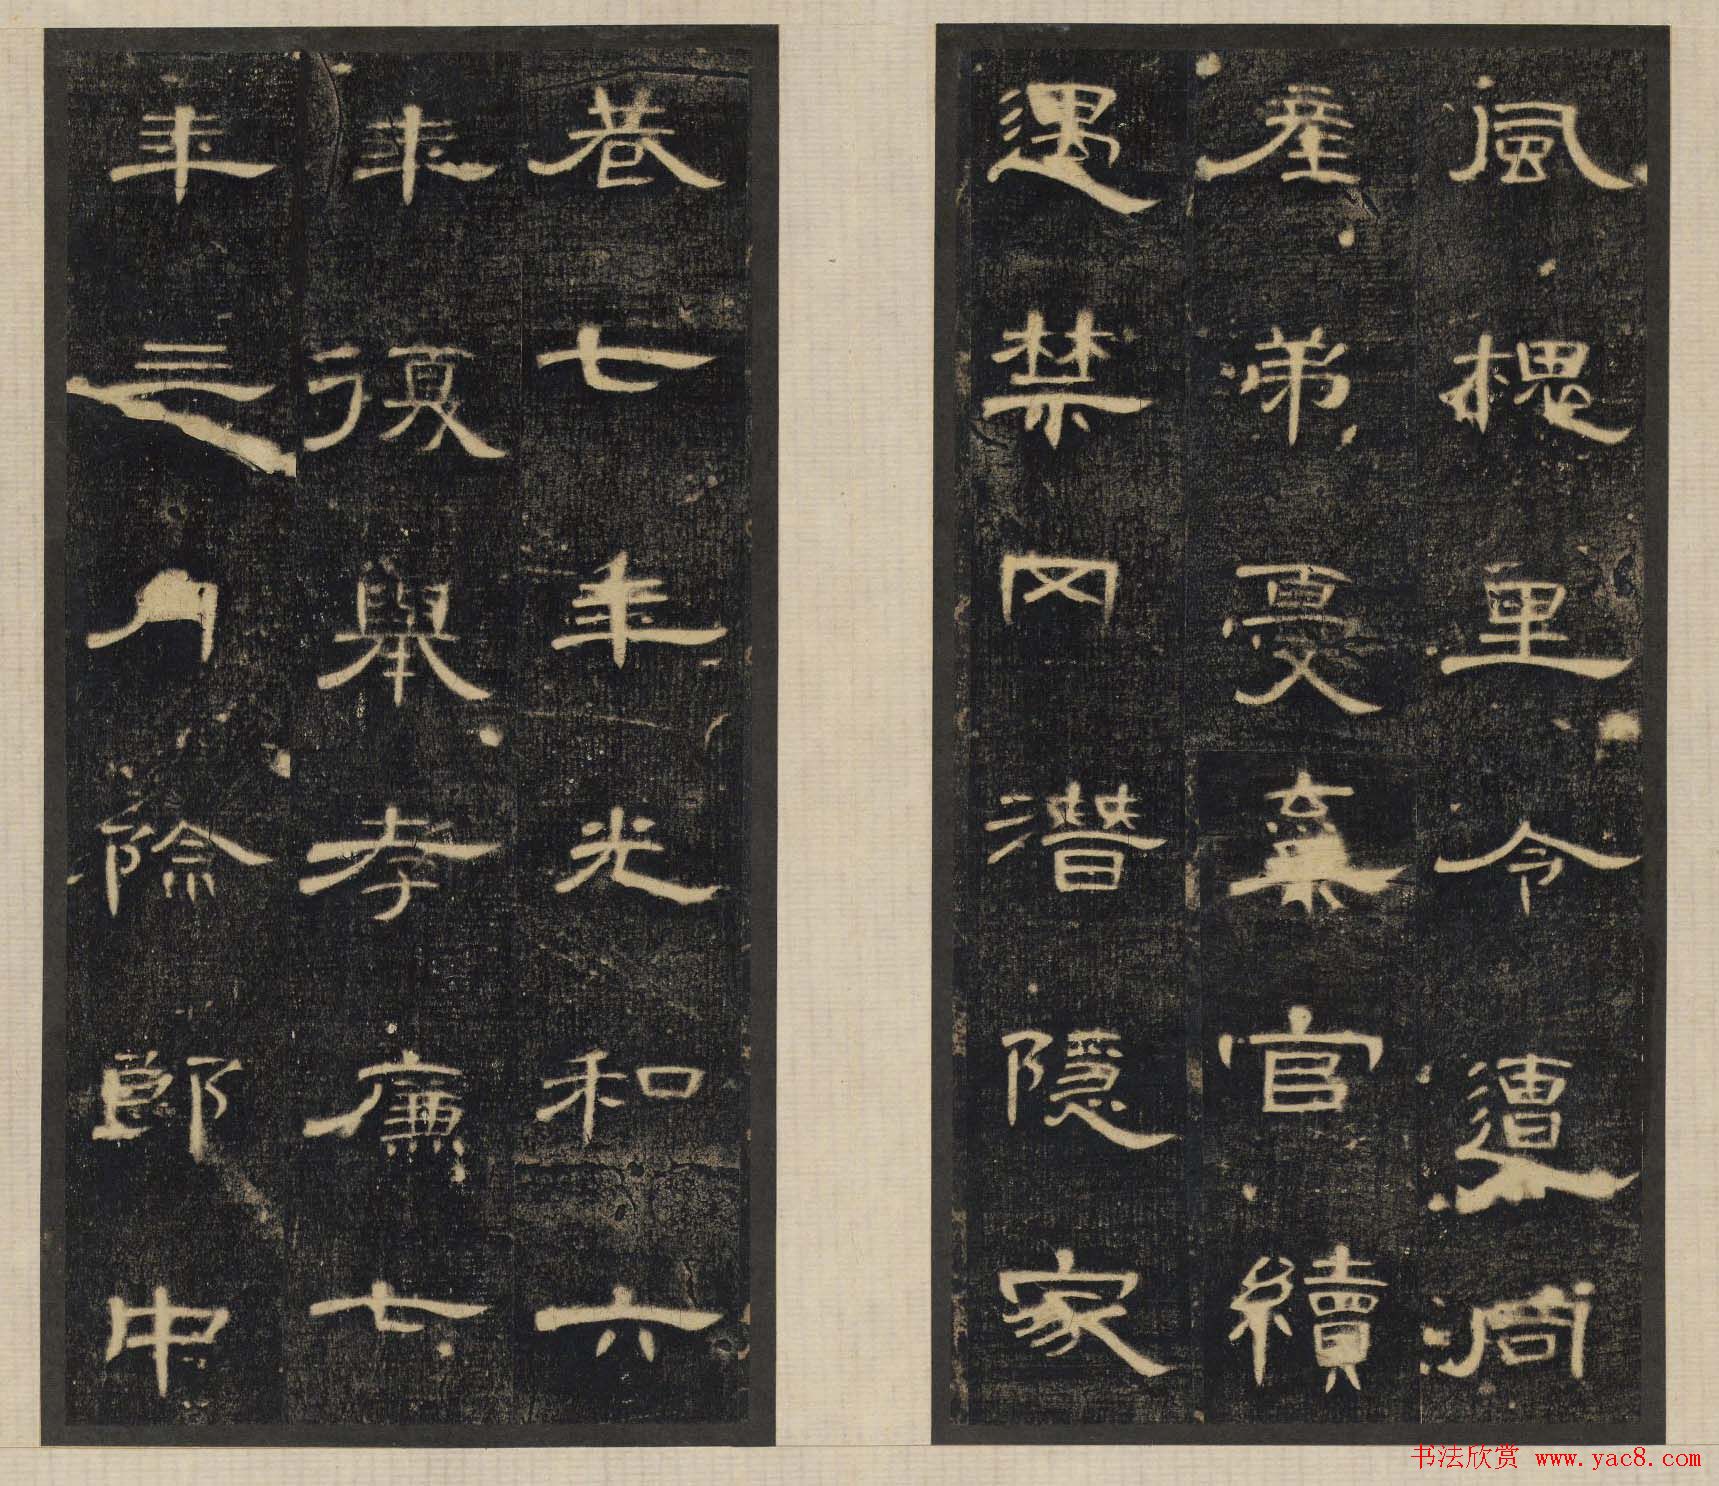 風槐里令遭同
產弟憂棄官續
遇禁冈潛隱家
巷七年光和六
年復舉孝廉七
年三月除郎中
书法欣赏 www.yac8.com